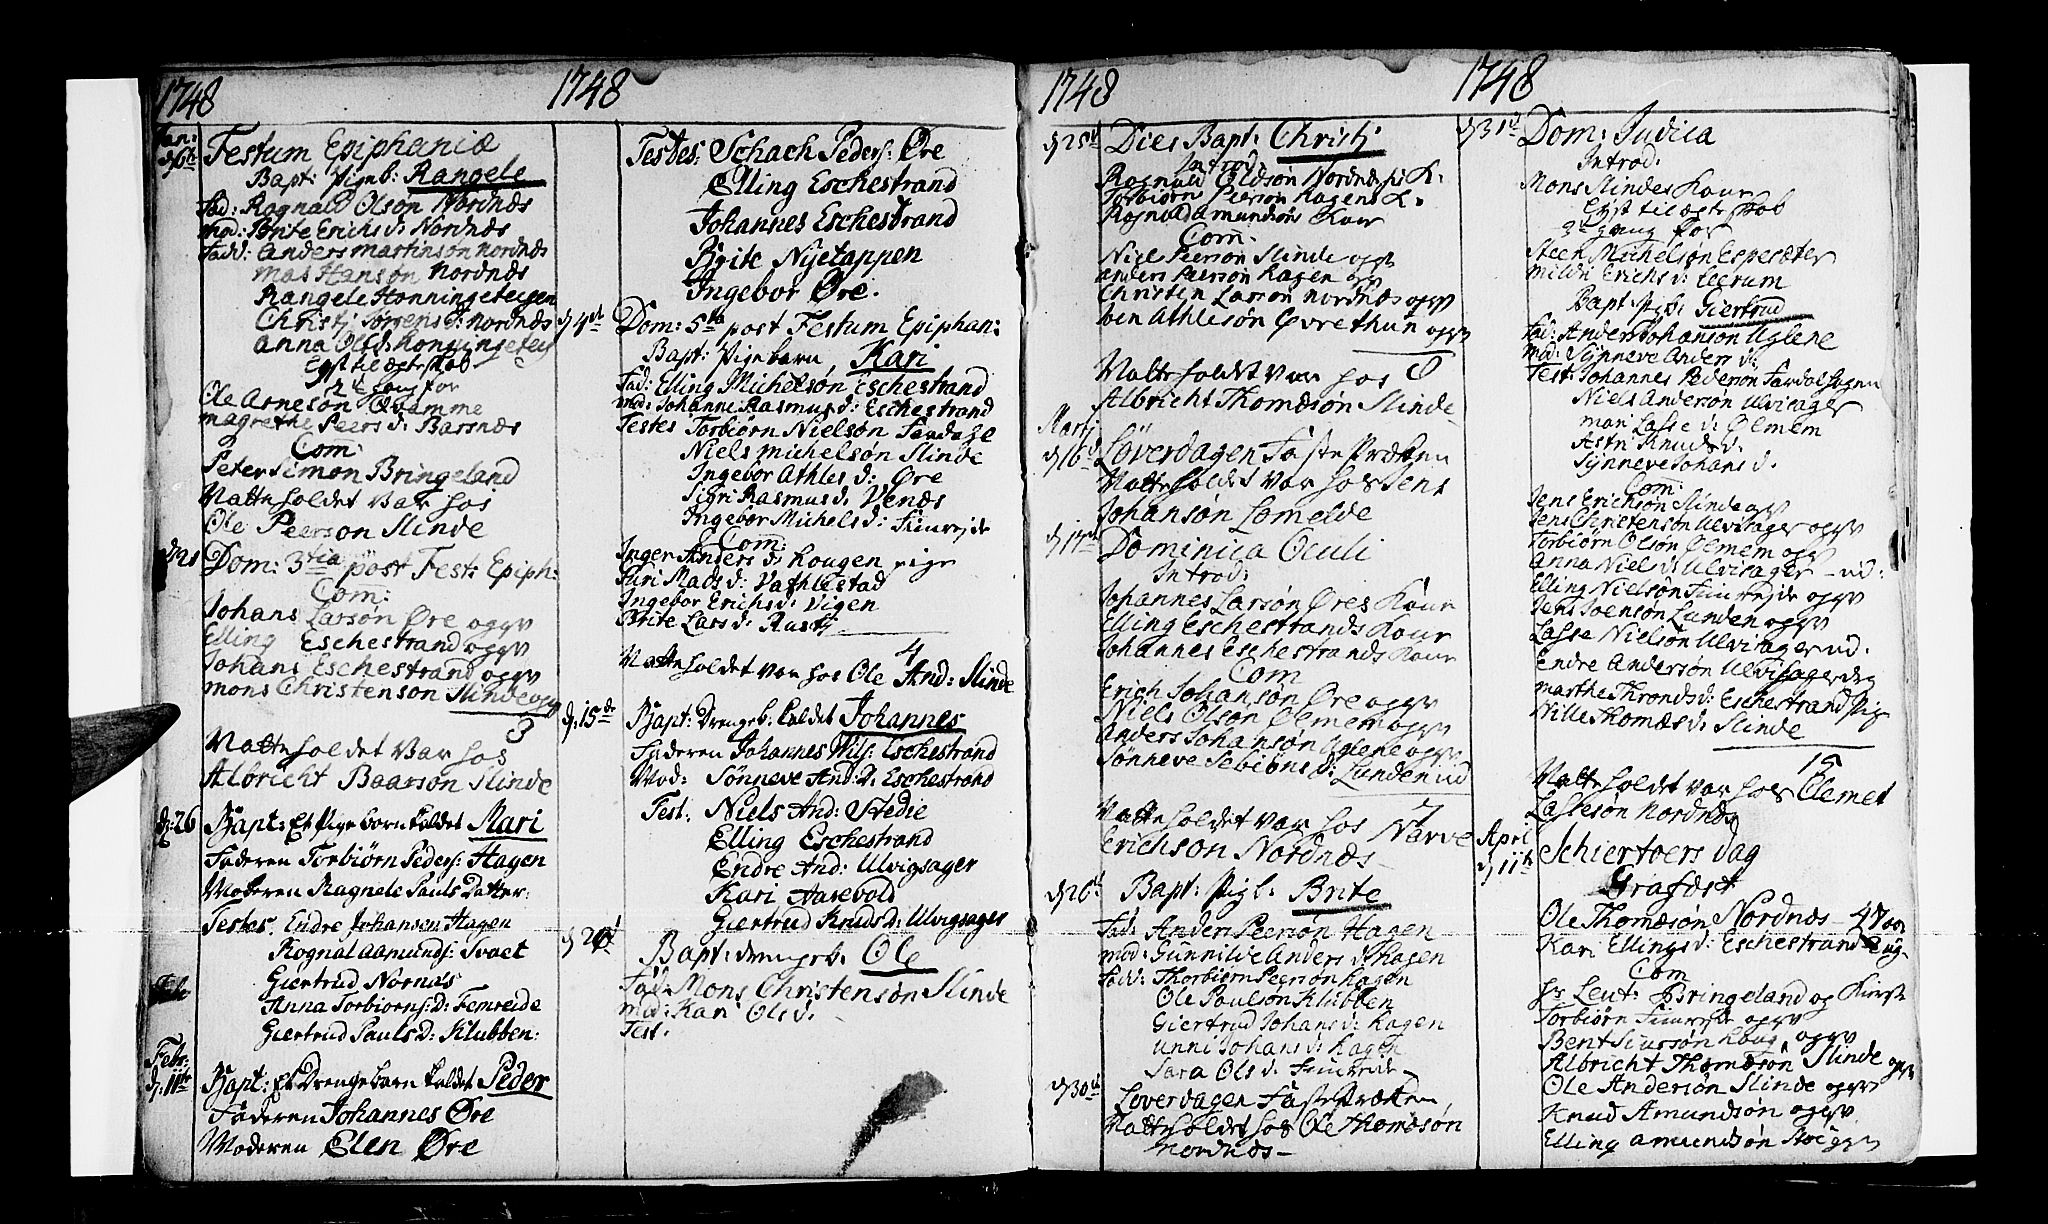 1748
1748
Jan:
d 6te
Festum Epiphaniæ
Bapt: Pigeb: Rangele
Fad: Rognald Olson Nordnæs
mod: Brite Erichs d: Nordnæs
Fadd: Anders martinsøn nordnæs
mas Hansøn nordnæs
Rangele Honningeteigen
Christj Sørens d: nordnæs
Anna Ols d: Honningeteig
Egt til Egteskab
2de gang for
Ole Arneson Qvamme
magrethe Peers d: Barsnæs
Com:
Peter Simon Bringeland
Natteholdet var hos
Ole Peerson Slinde
d 21
Dom: 3tia post Fest: Epiph:
Com:
Johans Larsøn Øre og qv
Elling Eschestrand og qv
Johans Eschestrand og qv
mons Christenson Slinde og qv
3
Natteholdet var hos
Albricht Baarson Slinde
d: 26
Bapt: Et Pigeborn kaldet Mari
Faderen Torbiørn Peders: Hagen
Moderen Ragnele Pauls Datter:
Testes. Endre Johansen Hagen
Rognal Aamunds: Svaet
Giertrud Nornæs
Anna Torbiorns: D: Femreide
Giertrud Pauls D: Klubben:
Feb:
Febr:
d. 11te
Bapt: Et Drengebarn kaldet Peder
Faderen Johannes Øre
Moderen Elen Øre
Testes: Schach Peders: Øre
Elling Eschestrand
Johannes Eschestrand
Brite Nyetappen
Ingebor Øre.
d 4de
Dom: 5ta post Festum Epiphan:
Bapt: Pigebarn Kari
Fad: Elling Michelsøn Eschestrand
mod: Johanne Rasmus d: Eschestrand
Testes Torbiørn Nielsøn Fardahl
Niels michelsøn Slinde
Ingebor Athles d: Øre
Sigri Rasmus d: Venæs
Ingebor Michels d: Fimreide
Com:
Inger Anders d: Hougen pige
Guri Mads d: Vathlestad
Ingebor Erichs d: Vigen
Brite Lars d: Rustj
4
Natteholdet var hos Ole And: Slinde
d. 15de
Bapt: Drengeb: kaldet Johannes
Faderen Johannes Nils: Eschestrand
Mod: Sønneve And: D: Eschestrand
Test. Niels And: Stedie
Elling Eschestrand
Endre And: Ulvigsager
Kari Aarevold
Giertrud Knuds D: Ulvigsager
Bapt: drengeb: Ole
Fad: Mons Christensøn Slinde
mod: Kari Ols d:
Test.
1748
1748
d 25de
Dies Bapt: Christi
Introd:
Rognald Olsøn Nordnæsis K.
Torbiørn Peersøn Hagens K.
Rognald Amundsøns Kone
Com:
Niel Peersøn Slinde og qv
Anders Peersøn Hagen og qv
Christen Larsøn nordnæs og qv
ben Athlesøn Øvrethun og qv
Natteholdet var hos
Albricht Thomæsøn Slinde
Martj
d 16d
Løverdagen Faste Præken
Natteholdet var hos Jens
Johansøn Lomelde
d 17de
Dominica Oculi
Introd:
Johannes Larsøn Øres Kone
Elling Eschestrands Kone
Johannes Eschestrands Kone
Com
Erich Johansøn Øre og qv
Niels Olsøn Ølmem og qv
Anders Johansøn Uglene og qv
Sønneve Sebiøns d: Lunden ud
7
Natteholdet var hos Narve
Erichson Nordnæs
d 26d
Bapt: Pigl: Brite
Fad: Anders Peersøn Hagen
mod: Gunnilde Anders d: Hagen
Fadd: Thorbiørn Peersøn Hagen
Ole Paulsøn Klubben
Giertrud Johans d: Hagen
unni Johans d: Hagen
Sara Ols d: Fimreide
d 30d
Løverdagen Faste Præken
Natteholdet hos Ole Thomæsøn
nordnæs
d 31d
Dom: Judica
Introd:
Mons Slindes Kone
Egt til Egteskab
3de gang for
Steen Michelsøn Espesæter
mildri Erichs d: Eerum
Bapt: Pigb: Giertrud
Fad: Anders Johanson Uglene
mod: Synneve Anders d:
Test: Johannes Pedersøn Fardal Hagen
Niels Andersøn Ulvisager
mari Lasse d: Ølmem
Astri Knuds d:
Synneve Johans d.
Com:
Jens Erichsøn Slinde og qv
Jens Christensøn Ulvisager og qv
Torbiørn Olsøn Ølmem og qv
Anna Niels d: Ulvisager – ud:
Elling Nielsøn Fimreide og qv
Jens Joensøn Lunden og qv
Lasse Nielsøn Ulvisager ud.
Endre Andersøn Ulvisager
marthe Thronds d: Eschestrand pig
Nille Thomæs d: Slinde
15
Natteholdet var hos Clemet
Lassesøn Nordnæs
April
d 11te
Schiertoers dag
Grafæst
Ole Thomæsøn Nordnæs
Kari Ellings d: Eschestrand
Com
Hr Leut: Bringeland og Kierste
Torbiørn Fimreide og qv
Bent Siursøn Houg og qv
Albricht Thomæsøn Slinde og qv
Ole Andersøn Slinde og qv
Knud Amundsøn og qv
Elling amundsøn